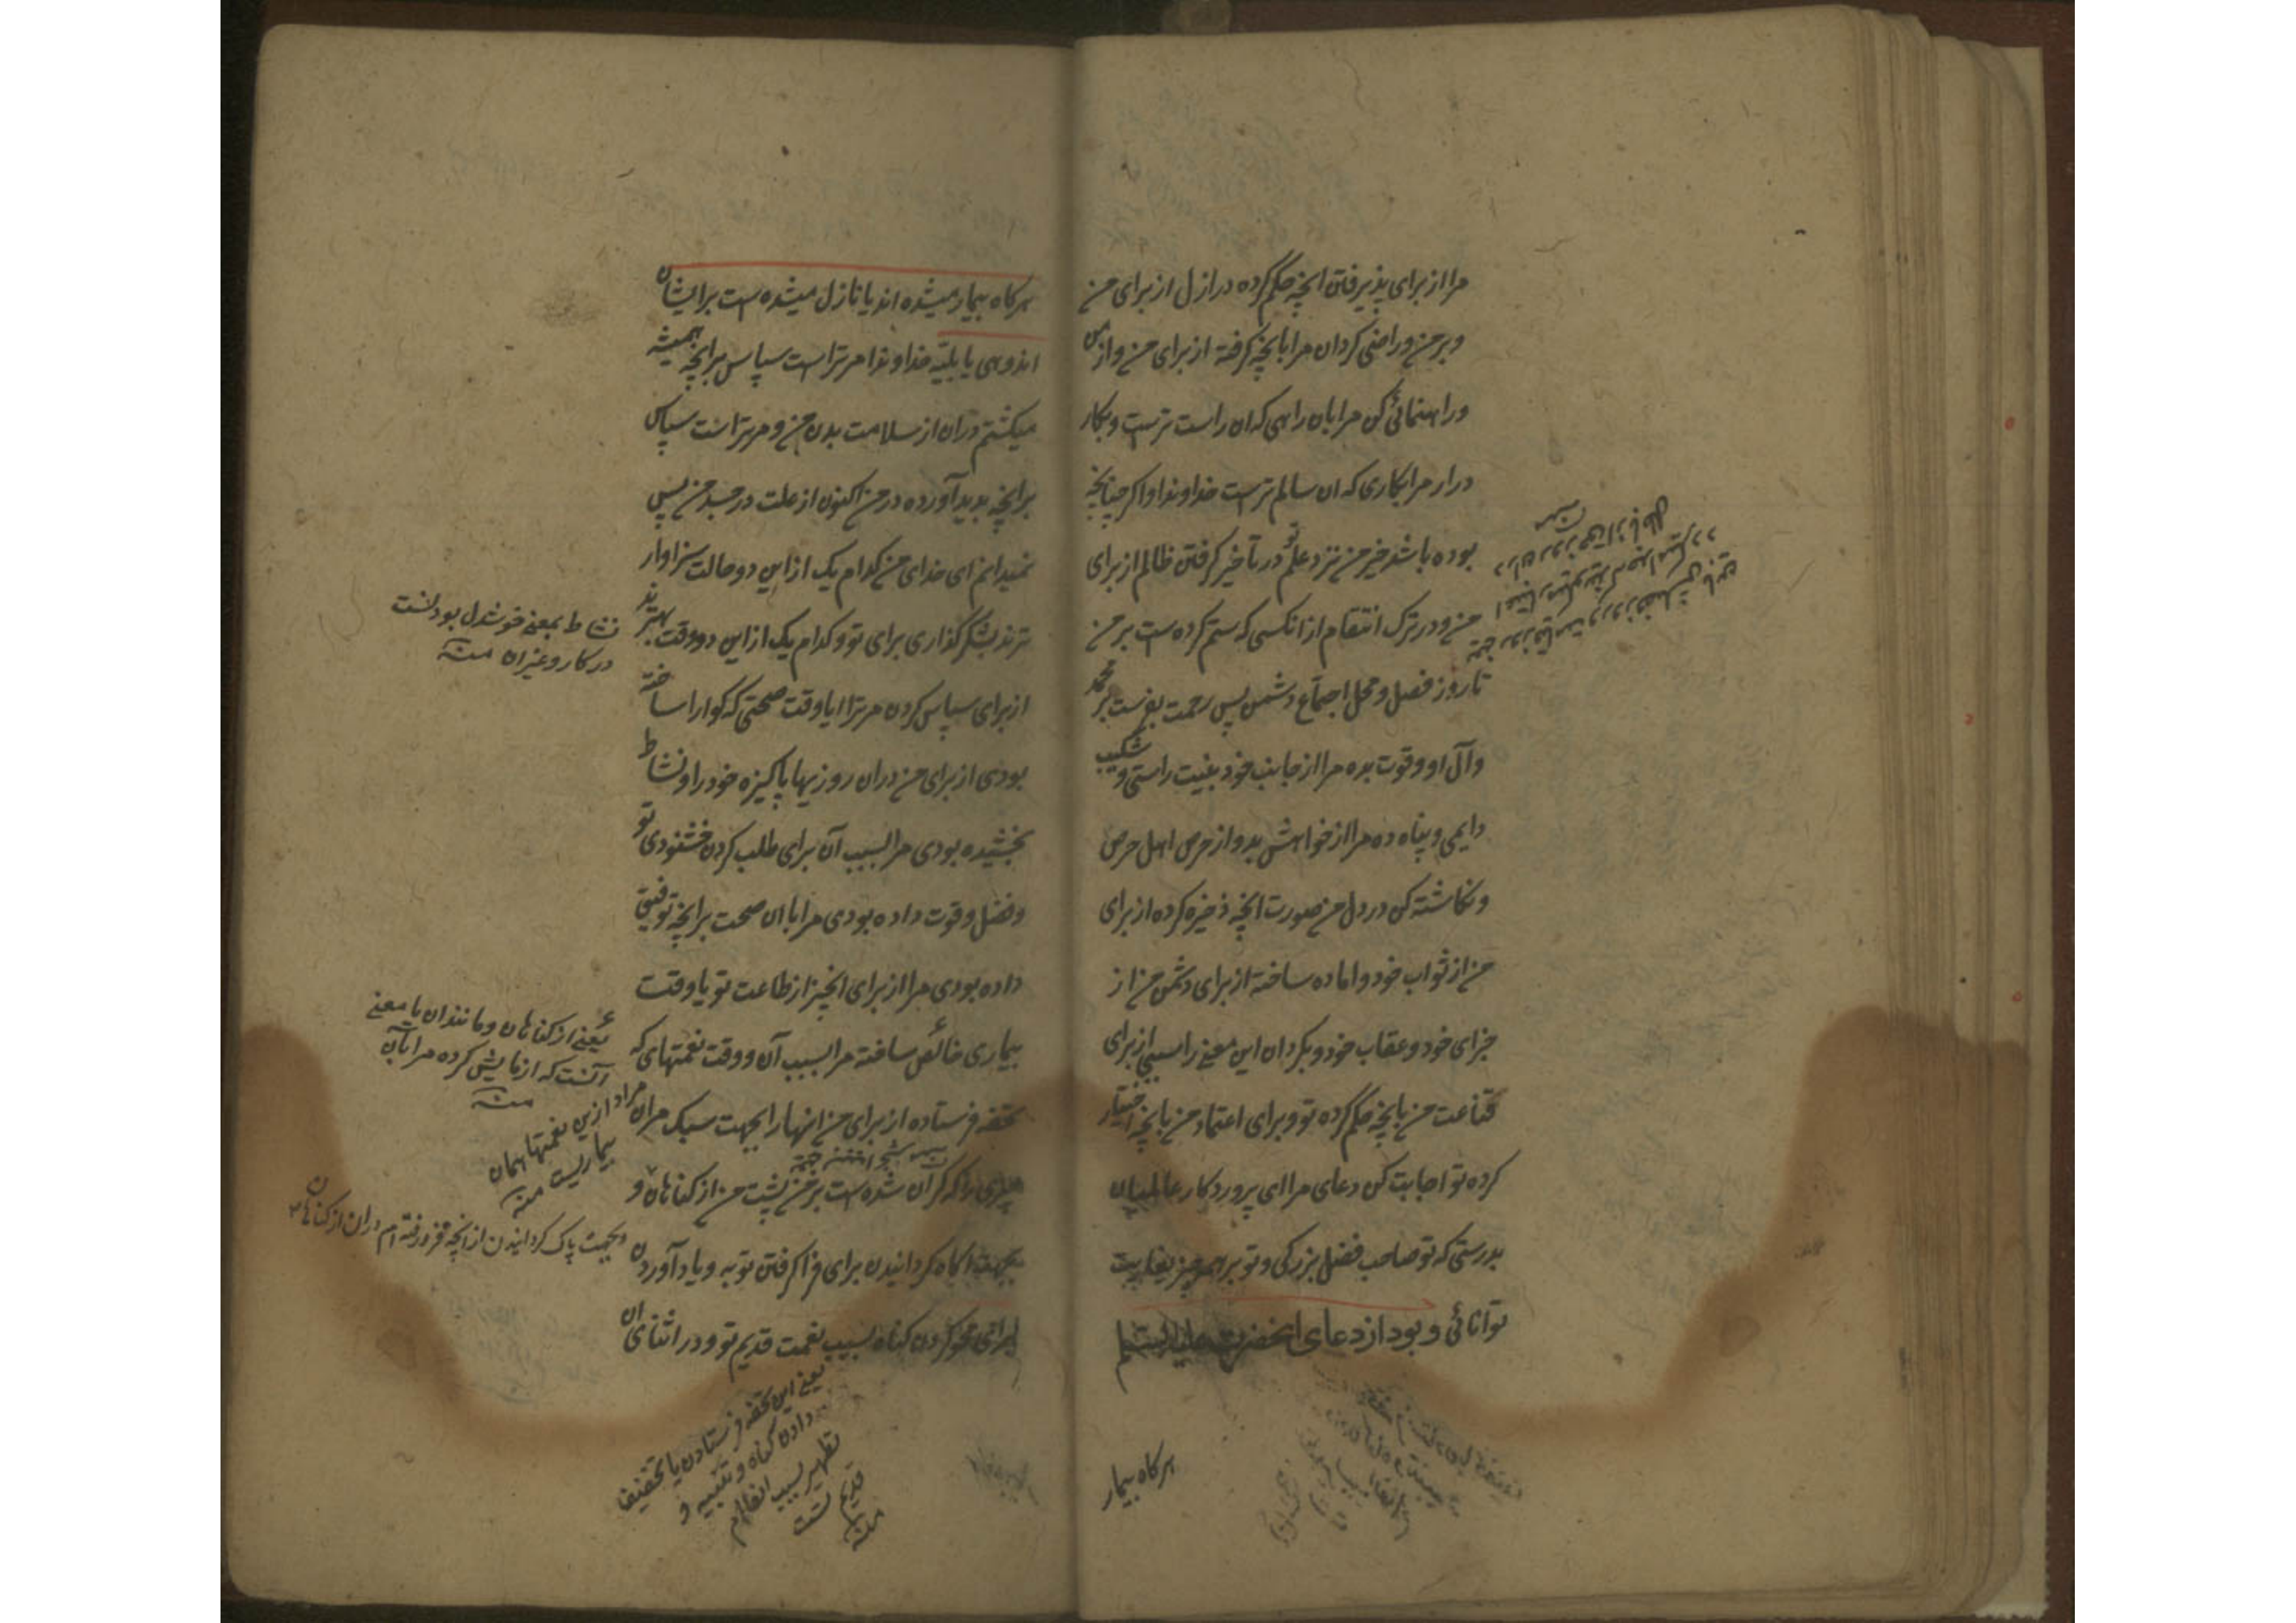 مرا از برای پذیرفتن انچه حکم کرده در ازل از برای من
و بر من و راضی کردان مرا بانچه کرفته از برای من و از من
و راهنمائی کن مرا بان راهی که ان راست ترست و بکار
درار مرا بکاری که ان سالم ترست خداوندا و اکر چنانچه
بوده باشد خیر من نزد علم تو در تاخیر کرفتن ظالم از برای
من و در ترک انتقام از انکسی که ستم کرده است بر من
تا روز فصل و محل اجتماع دشمن پس رحمت بفرست بر محمد
و آل او و قوت بده مرا از جانب خود بنیت راستی و شکیب
دایمی و پناه ده مرا از خواهش بد و از حرص اهل حرص
و نکاشته کن در دل من صورت انچه ذخیره کرده از برای
من از ثواب خود و اماده ساخته از برای دشمن من از
جزای خود و عقاب خود و بکردان این معنی را سببی از برای
قناعت من بانچه حکم کرده تو و برای اعتماد من بانچه اختیار
کرده تو اجابت کن دعای مرا ای پروردکار عالمیان
بدرستی که تو صاحب فضل بزرکی و تو بر همه چیز بغایت
توانائی و بود از دعای انحضرت علیه السلام
هرکاه بیمار
هرکاه بیمار میشده اند یا نازل میشده است برایشان
اندوهی یا بلیه خداوندا مر تراست سپاس بر انچه همیشه
میکشتم دران از سلامت بدن من و مر تراست سپاس
بر انچه پدید آورده در من اکنون از علت در جسد من پس
نمیدانم ای خدای من کدام یک از این دو حالت سزاوار
ترند بشکر کذاری برای تو و کدام یک از این دو وقت بهترند
از برای سپاس کردن مر ترا ایا وقت صحتی که کوارا ساخته
بودی از برای من دران روزیها پاکیزه خود را و نشاط
بخشیده بودی مرا بسبب آن برای طلب کردن خشنودی تو
و فضل و قوت داده بودی مرا باان صحت بر انچه توفیق
داده بودی مرا از برای انچیز از طاعت تو یا وقت
بیماری خالص ساخته مرا بسبب آن و وقت نعمتهای که
تحفه فرستاده از برای من انها را بجهت سبک مران
چیزی را که کران شده است بر من پشت من از کناهان و
بجهت اکاه کردانیدن برای فرا کرفتن توبه و یاد آوردن
برای محو کردن کناه بسبب نعمت قدیم تو و در اثنای ان
نشاط بمعنی خوشدل بودنست
در کار و غیر ان منه
یعنی از کناهان و مانند ان یا معنی
آنست که ازمایش کرده مرا بآن
منه
مراد ازین نعمتها همان
بیماریست منه
و بجهت پاک کردانیدن از انچه فرو رفته ام دران از کناهان
یعنی این تحفه فرستادن یا تخفیف
دادن کناه و تنبیه و
تطهیر بسبب انعام
قدیم تست
منه